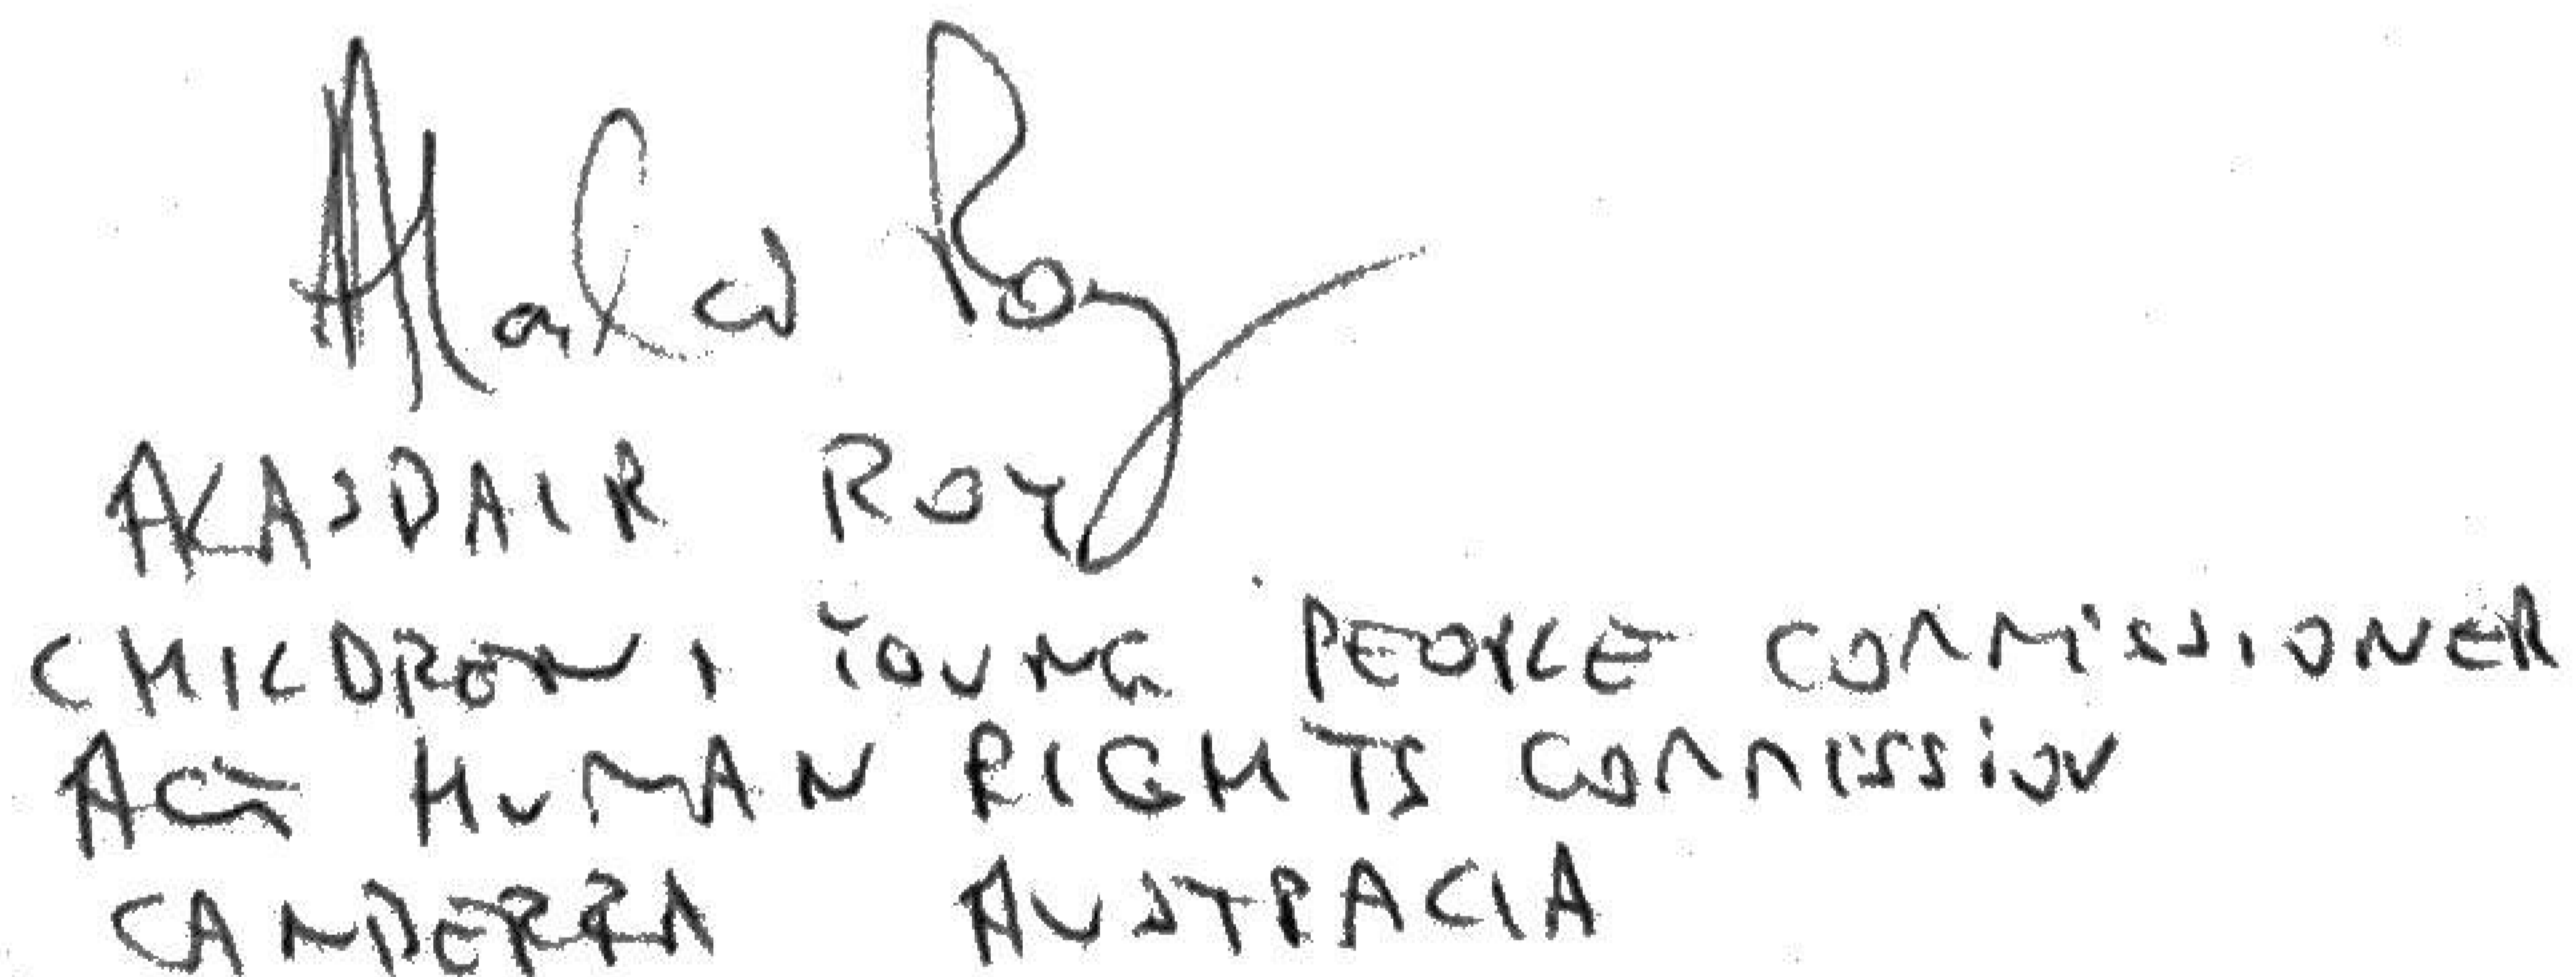 Alasdair Roy
ALASDAIR ROY
CHILDREN & YOUNG PEOPLE COMMISSIONER
ACT HUMAN RIGHTS COMMISSION
CANBERRA AUSTRALIA